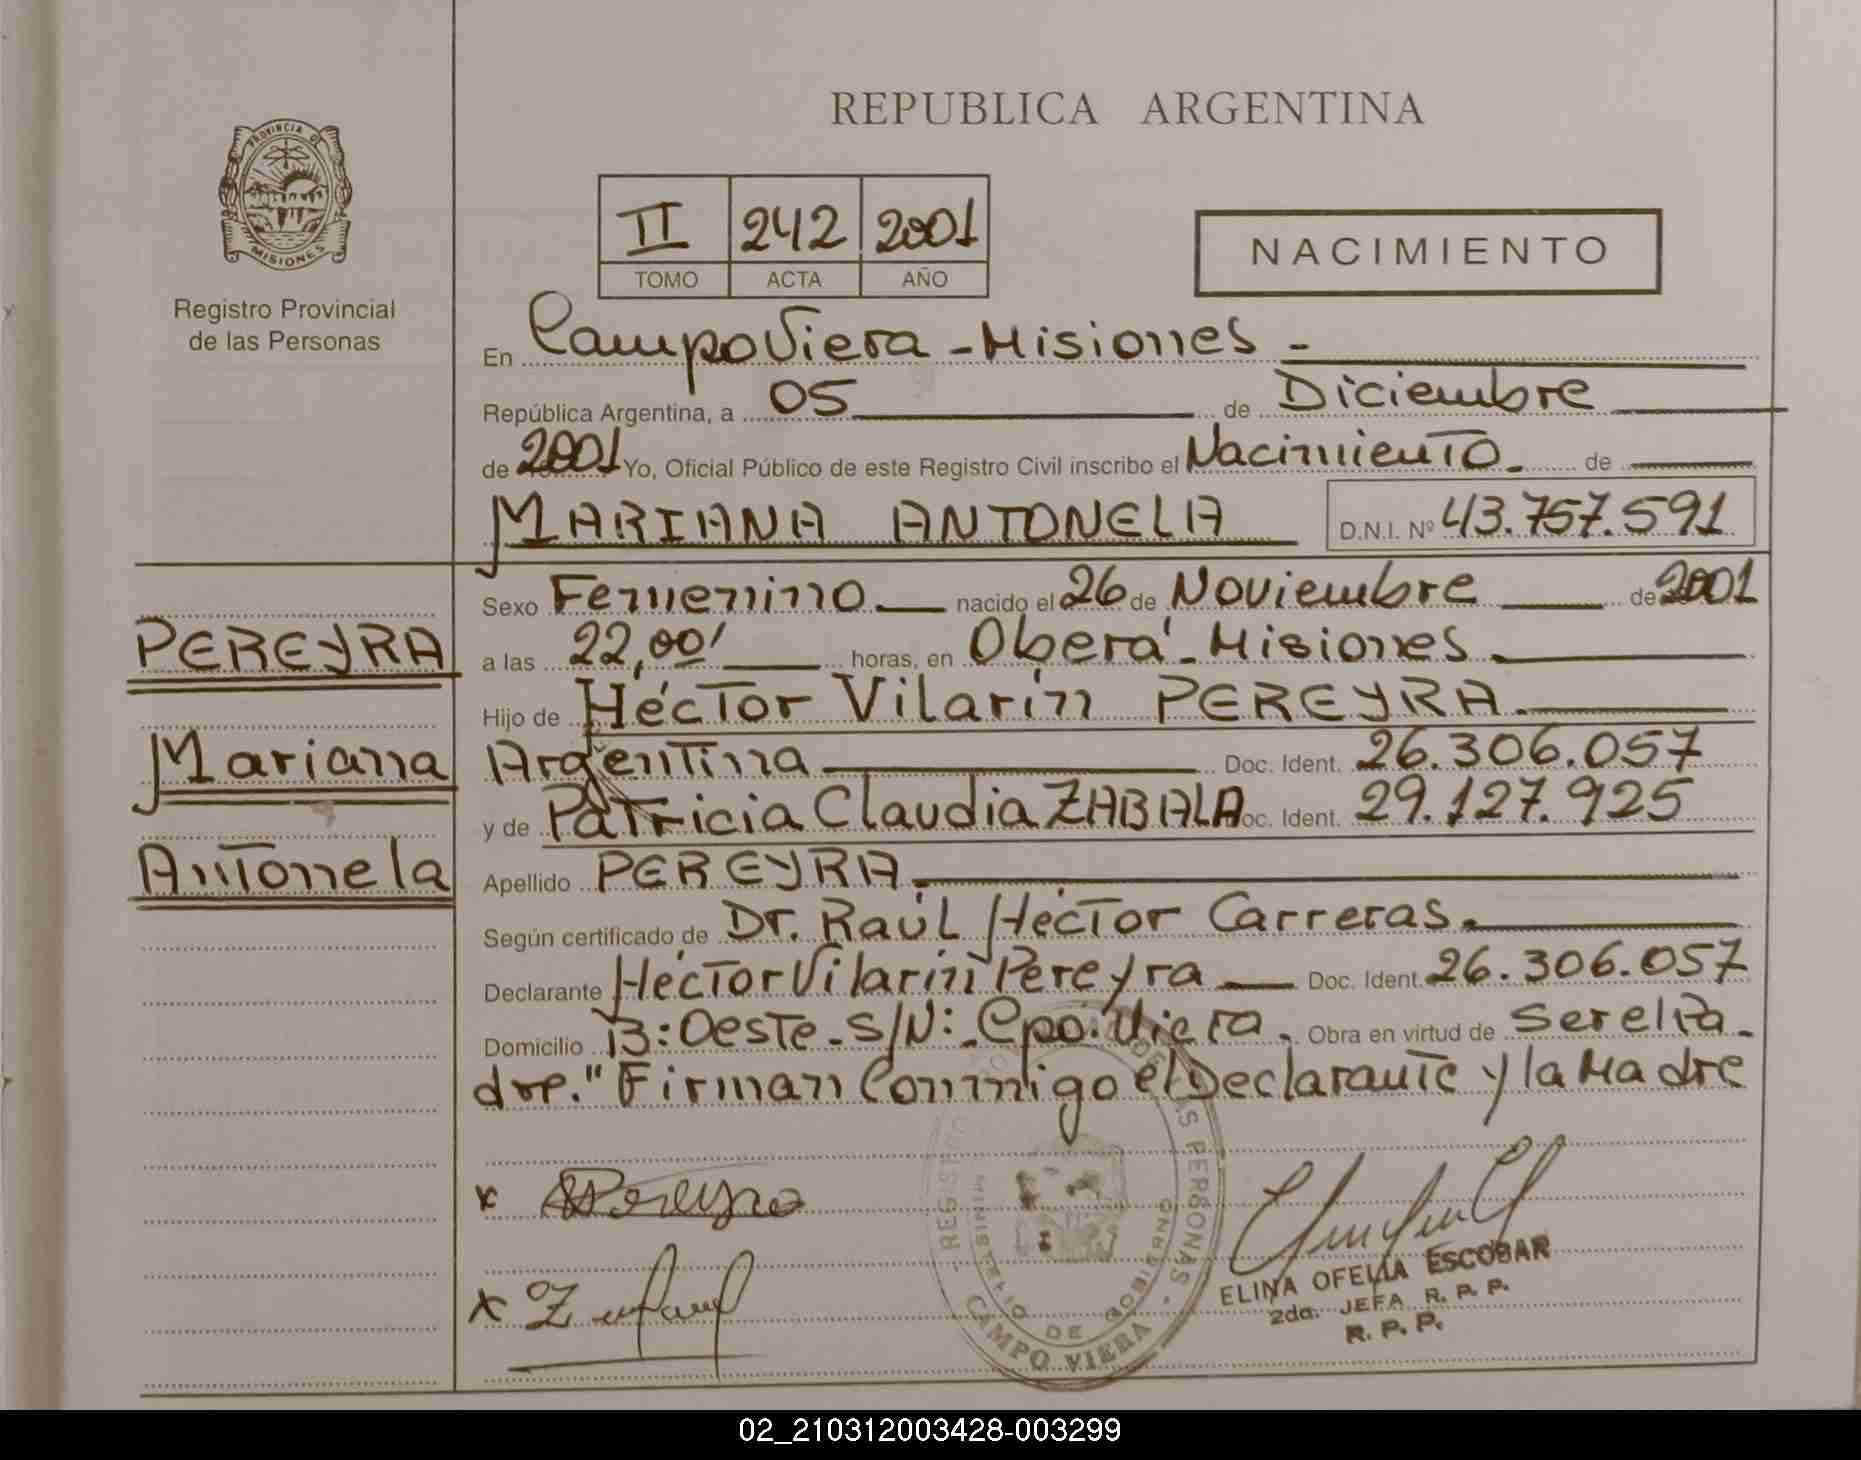 REPUBLICA ARGENTINA
PROVINCIA DE
MISIONES
Registro Provincial
de las Personas
II 242 2001
TOMO ACTA AÑO
NACIMIENTO
En Campo Viera - Misiones -
República Argentina, a 05 de Diciembre
de 2001 Yo, Oficial Público de este Registro Civil inscribo el Nacimiento. de
MARIANA ANTONELA D.N.I. Nº 43.757.591
PEREYRA
Mariana
Antonela
Sexo Femenino nacido el 26 de Noviembre de 2001
a las 22,00' horas, en Oberá - Misiones
Hijo de Héctor Vilarin PEREYRA.
Argentina Doc. Ident. 26.306.057
y de Patricia Claudia ZABALA Doc. Ident. 29.127.925
Apellido PEREYRA.
Según certificado de Dr. Raúl Héctor Carreras.
Declarante Héctor Vilarin Pereyra Doc. Ident. 26.306.057
Domicilio B: Oeste - S/N: - Cpo. Viera. Obra en virtud de Ser el Pa-
dre." Firman Conmigo el Declarante y la Madre
x Pereyra
x
REGISTRO PROVINCIAL DE LAS PERSONAS
MINISTERIO DE GOBIERNO
CAMPO VIERA
ELINA OFELIA ESCOBAR
2da. JEFA R. P. P.
R. P. P.
02_210312003428-003299